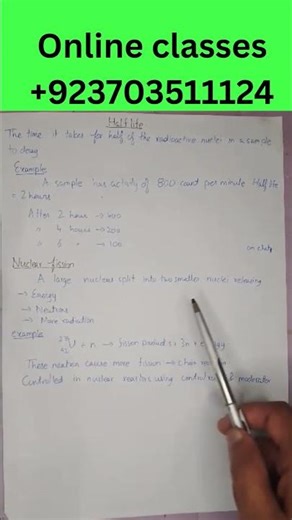 Online classes
+923703511124
Half life
The time it takes for half of the radioactive nuclei in a sample
to decay
Example
A sample has activity of 800 count per minute Half life
= 2 hours
After 2 hour → 400
" 4 hours → 200
" 6 " → 100
Nuclear fission
A large nucleus split into two smaller nuclei releasing
→ Energy
→ Neutrons
→ More radiation
example
U + n → fission products + 3n + energy
These neutron cause more fission → Chain
Controlled in nuclear reactor using control & moderator